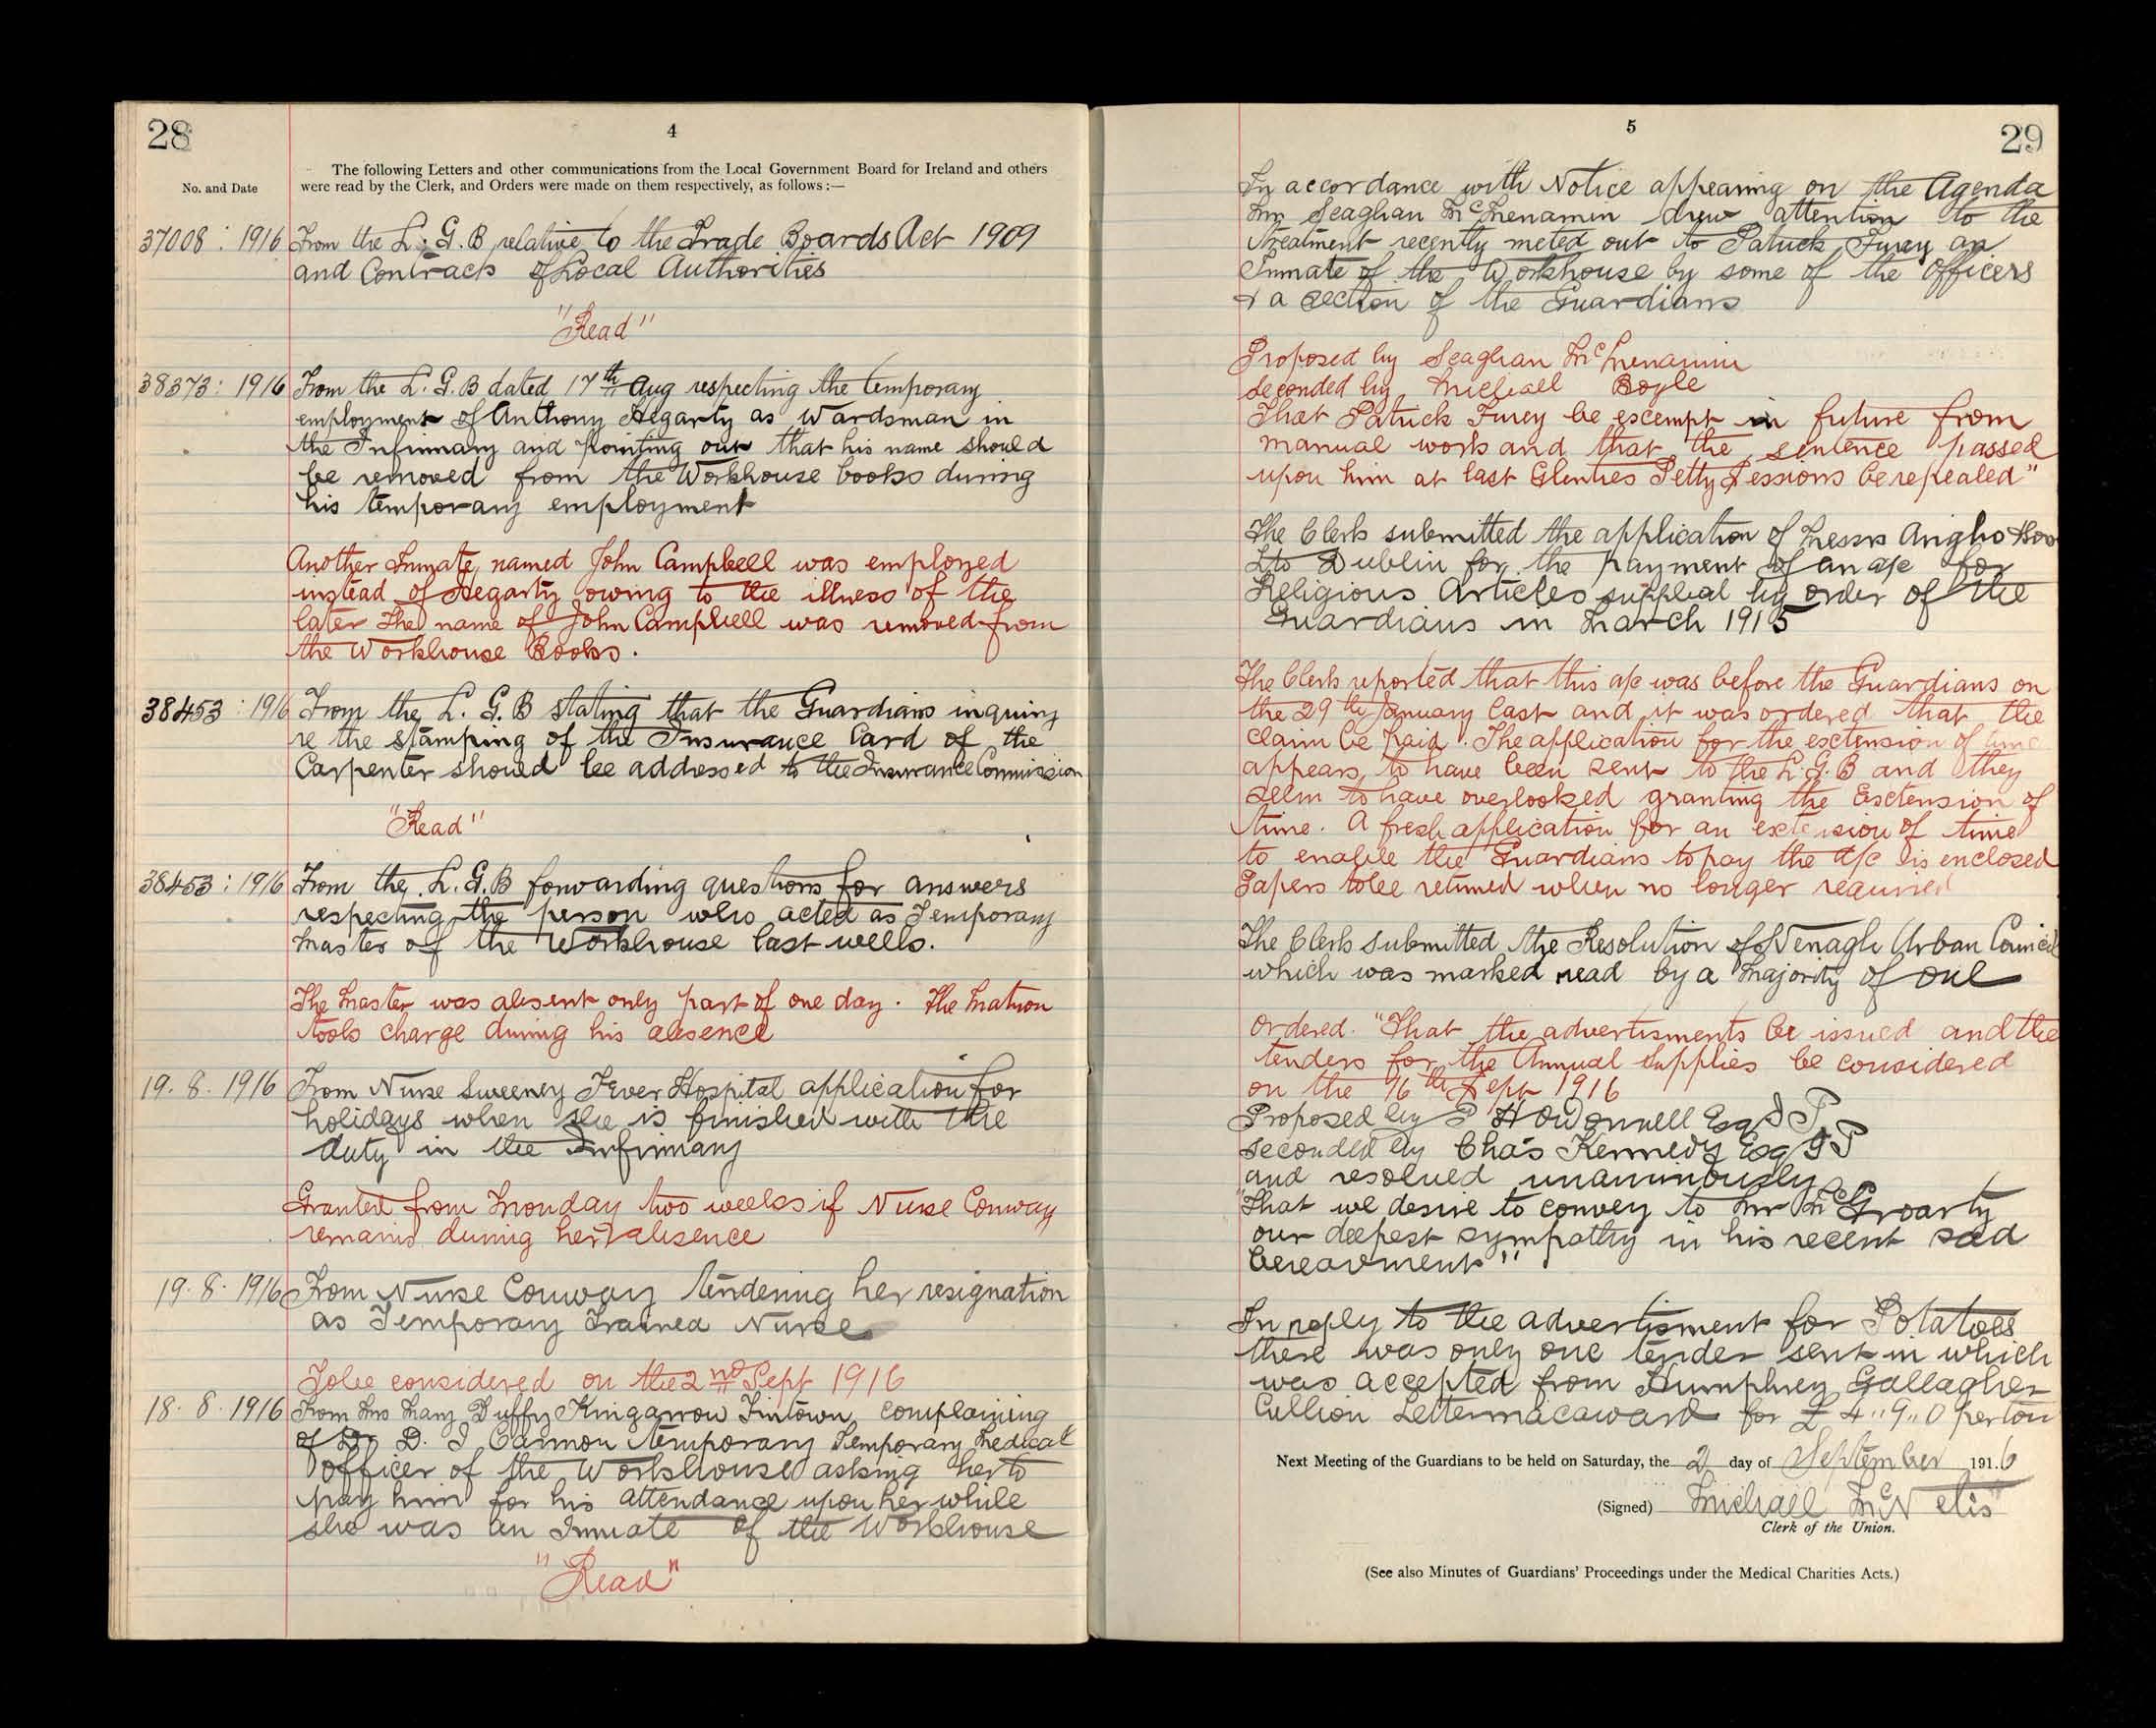 28
4
The following Letters and other communications from the Local Government Board for Ireland and others
No. and Date
were read by the Clerk, and Orders were made on them respectively, as follows:—
37008 : 1916 From the L. G. B relative to the Trade Boards Act 1909
and Contracts of Local Authorities
"Read"
38373 : 1916 From the L. G. B dated 17th Aug respecting the temporary
employment of Anthony Hegarty as Wardsman in
the Infirmary and pointing out that his name should
be removed from the Workhouse books during
his temporary employment
Another Inmate named John Campbell was employed
instead of Hegarty owing to the illness of the
later The name of John Campbell was removed from
the Workhouse Books.
38453 : 1916 From the L. G. B stating that the Guardians inquiry
re the stamping of the Insurance Card of the
Carpenter should be addressed to the Insurance Commission
"Read"
38453 : 1916 From the L. G. B forwarding questions for answers
respecting the person who acted as Temporary
Master of the Workhouse last week.
The Master was absent only part of one day. The Matron
took charge during his absence
19. 8. 1916 From Nurse Sweeney Fever Hospital application for
holidays when she is finished with the
duty in the Infirmary
Granted from Monday two weeks if Nurse Conway
remains during her absence
19. 8. 1916 From Nurse Conway tendering her resignation
as Temporary Trained Nurse
To be considered on the 2nd Sept 1916
18. 8. 1916 From Mrs Mary Duffy Kingarrow Fintown complaining
of Dr D. J Cannon temporary Temporary Medical
Officer of the Workhouse asking her to
pay him for his attendance upon her while
she was an Inmate of the Workhouse
"Read"
5
29
In accordance with Notice appearing on the Agenda
Mr Seaghan McMenamin drew attention to the
treatment recently meted out to Patrick Furey an
Inmate of the Workhouse by some of the Officers
& a section of the Guardians
Proposed by Seaghan McMenamin
seconded by Micheall Boyle
That Patrick Furey be escempt in future from
manual work and that the sentence passed
upon him at last Glenties Petty Sessions be repealed"
The Clerk submitted the application of Messrs
Ltd Dublin for the payment of an a/c for
Religious Articles supplied by order of the
Guardians in March 1915
The Clerk reported that this a/c was before the Guardians on
the 29th January last and it was ordered that the
claim be paid. The application for the esctension of time
appears to have been sent to the L. G. B and they
seem to have overlooked granting the Esctension of
time. A fresh application for an extension of time
to enable the Guardians to pay the a/c is enclosed
Papers to be returned when no longer required
The Clerk submitted the Resolution of Nenagh Urban Council
which was marked read by a Majority of one
Ordered. "That the advertisments be issued and the
tenders for the Annual Supplies be considered
on the 16th Sept 1916
Proposed by P H O'Donnell Esq J P
seconded by Chas Kennedy Esq J P
and resolved unaminously
"That we desire to convey to Mr McGroarty
our deepest sympathy in his recent sad
bereavment"
In reply to the advertisment for Potatoes
there was only one tender sent in which
was accepted from Humphrey Gallagher
Cullion Lettermacaward for £4"9"0 per ton
Next Meeting of the Guardians to be held on Saturday, the 2 day of September 1916
(Signed) Michael McNelis
Clerk of the Union.
(See also Minutes of Guardians' Proceedings under the Medical Charities Acts.)